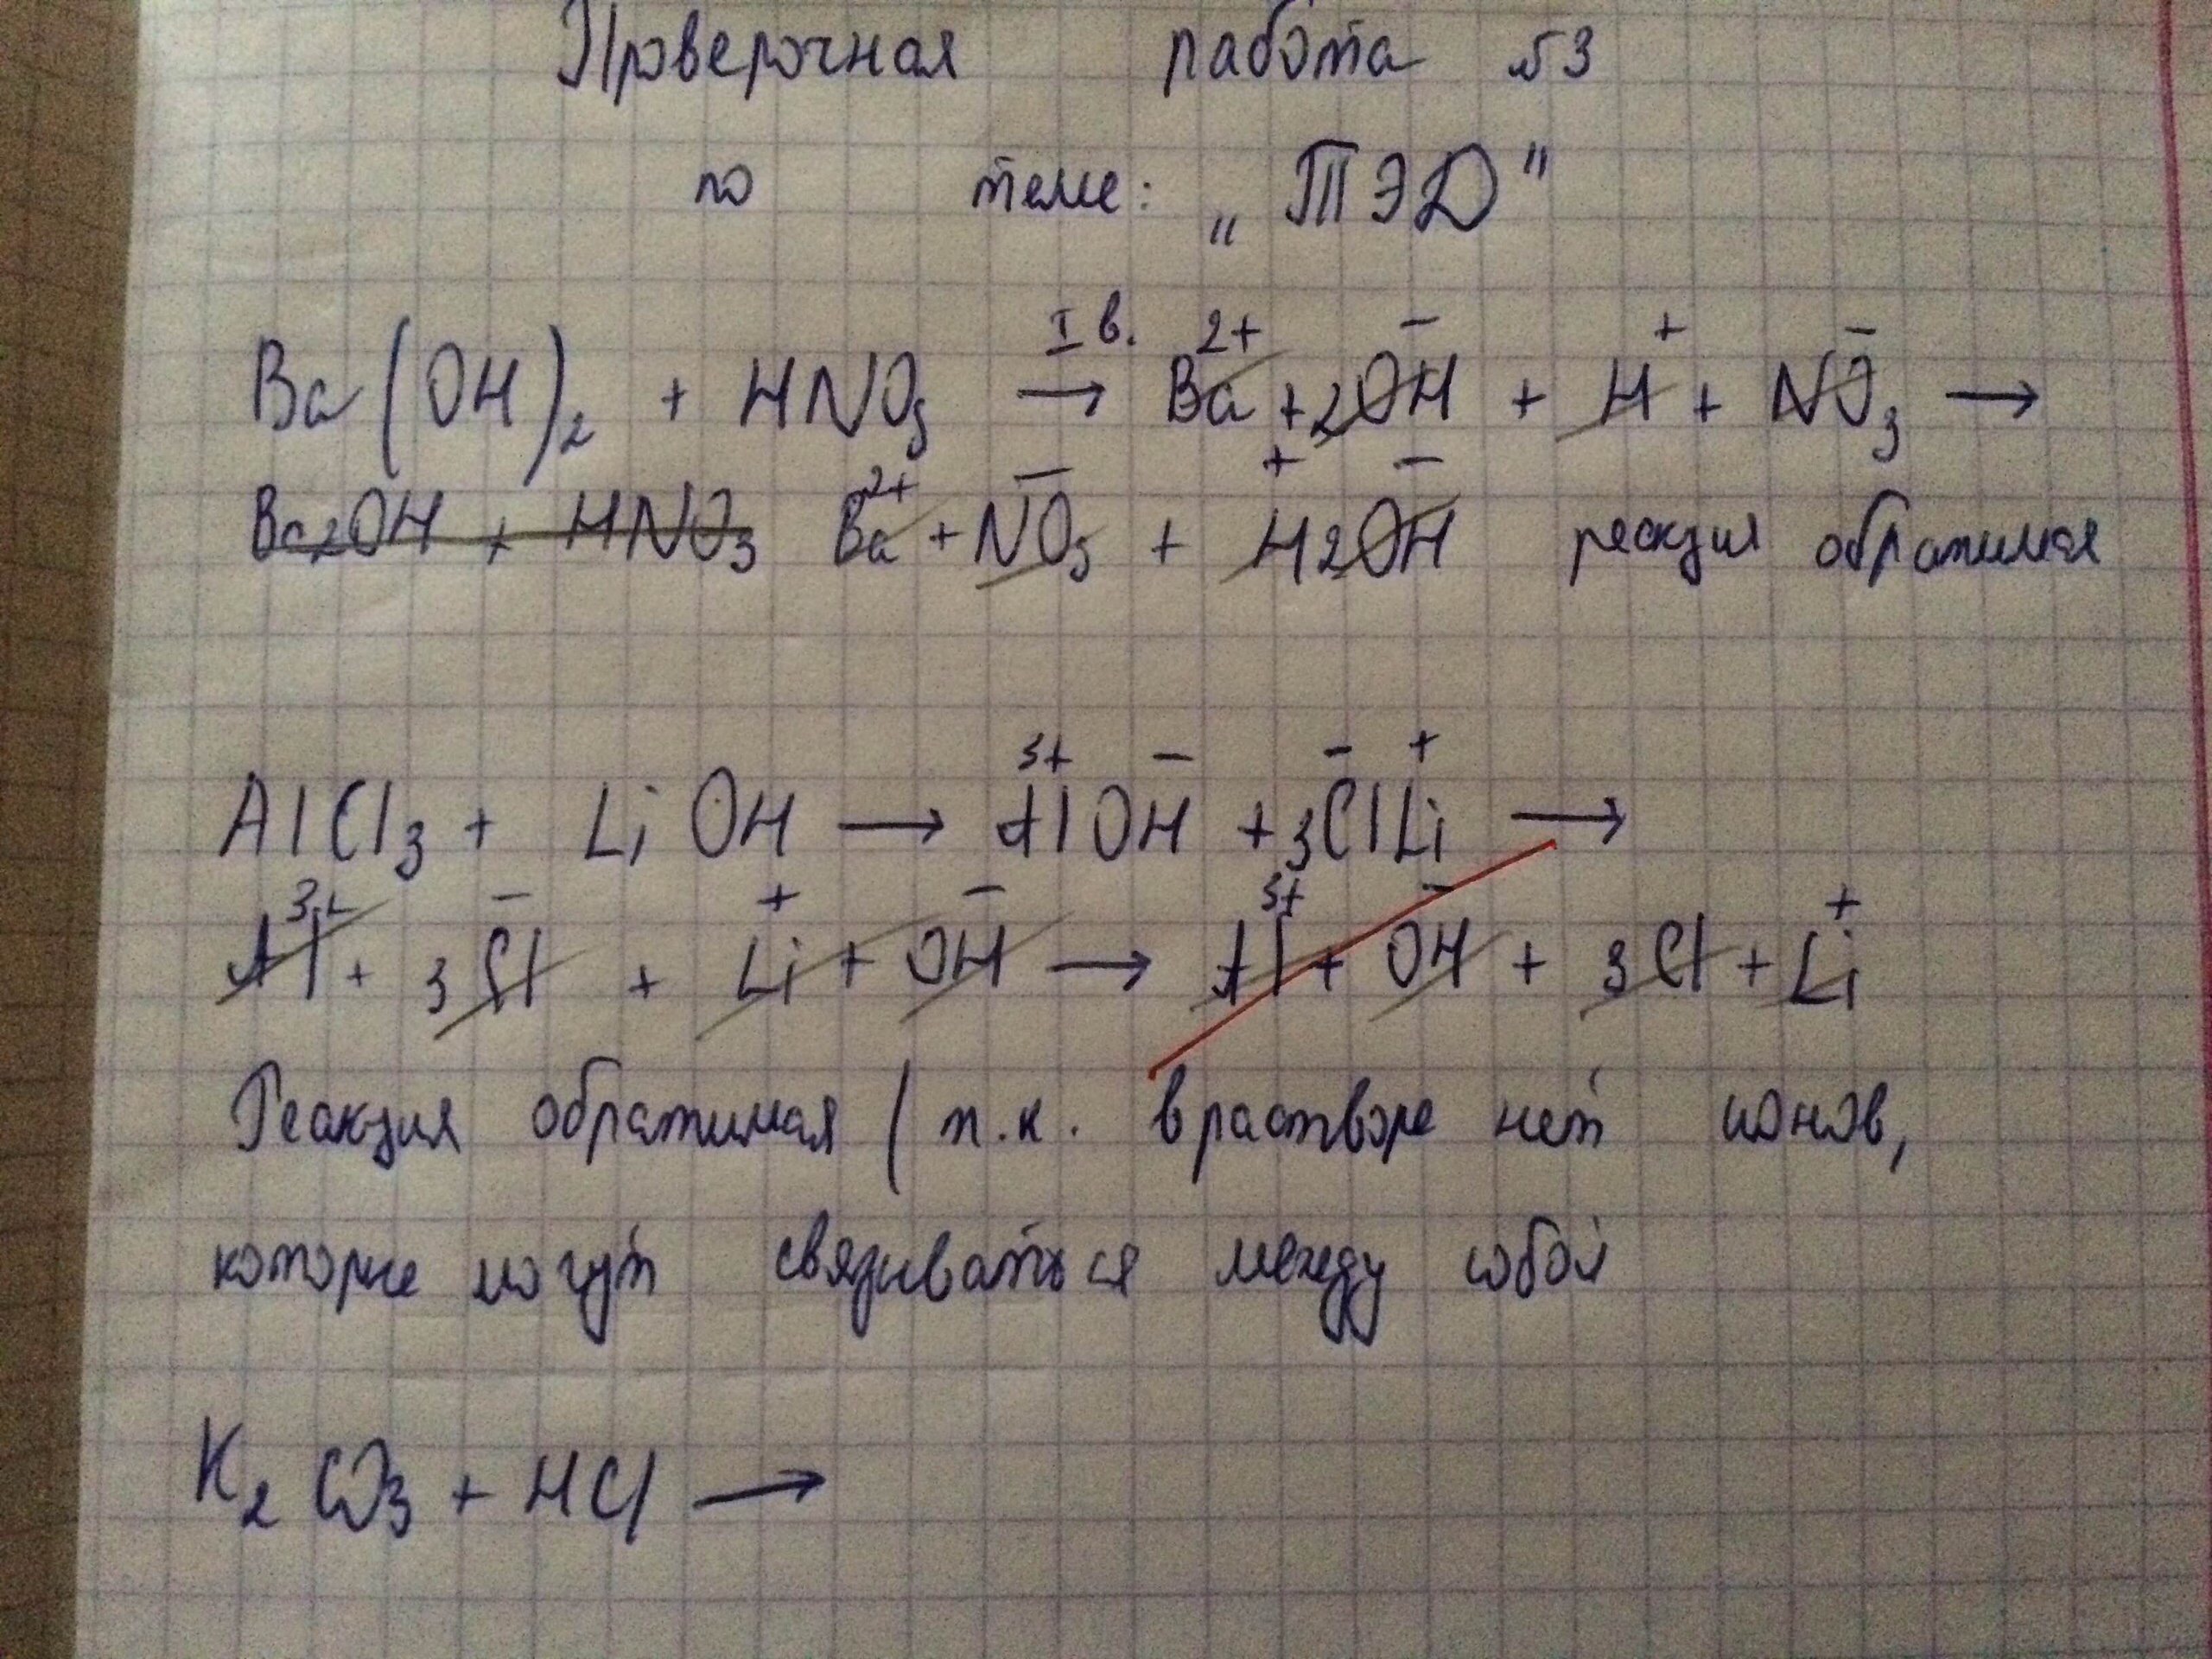 Проверочная работа №3
по теме: „ТЭД"
Ba(OH)₂ + HNO₃ →ᴵ ᵛ· Ba²⁺ + 2OH⁻ + H⁺ + NO₃⁻ →
Ba2OH + HNO₃ Ba²⁺ + NO₃⁻ + H⁺2OH⁻ реакция обратимая
AlCl₃ + LiOH → Al³⁺OH⁻ + 3Cl⁻Li⁺ →
Al³⁺ + 3Cl⁻ + Li⁺ + OH⁻ → Al³⁺ + OH⁻ + 3Cl + Li⁺
Реакция обратимая (т.к. в растворе нет ионов,
которые могут связиваться между собой
K₂CO₃ + HCl →